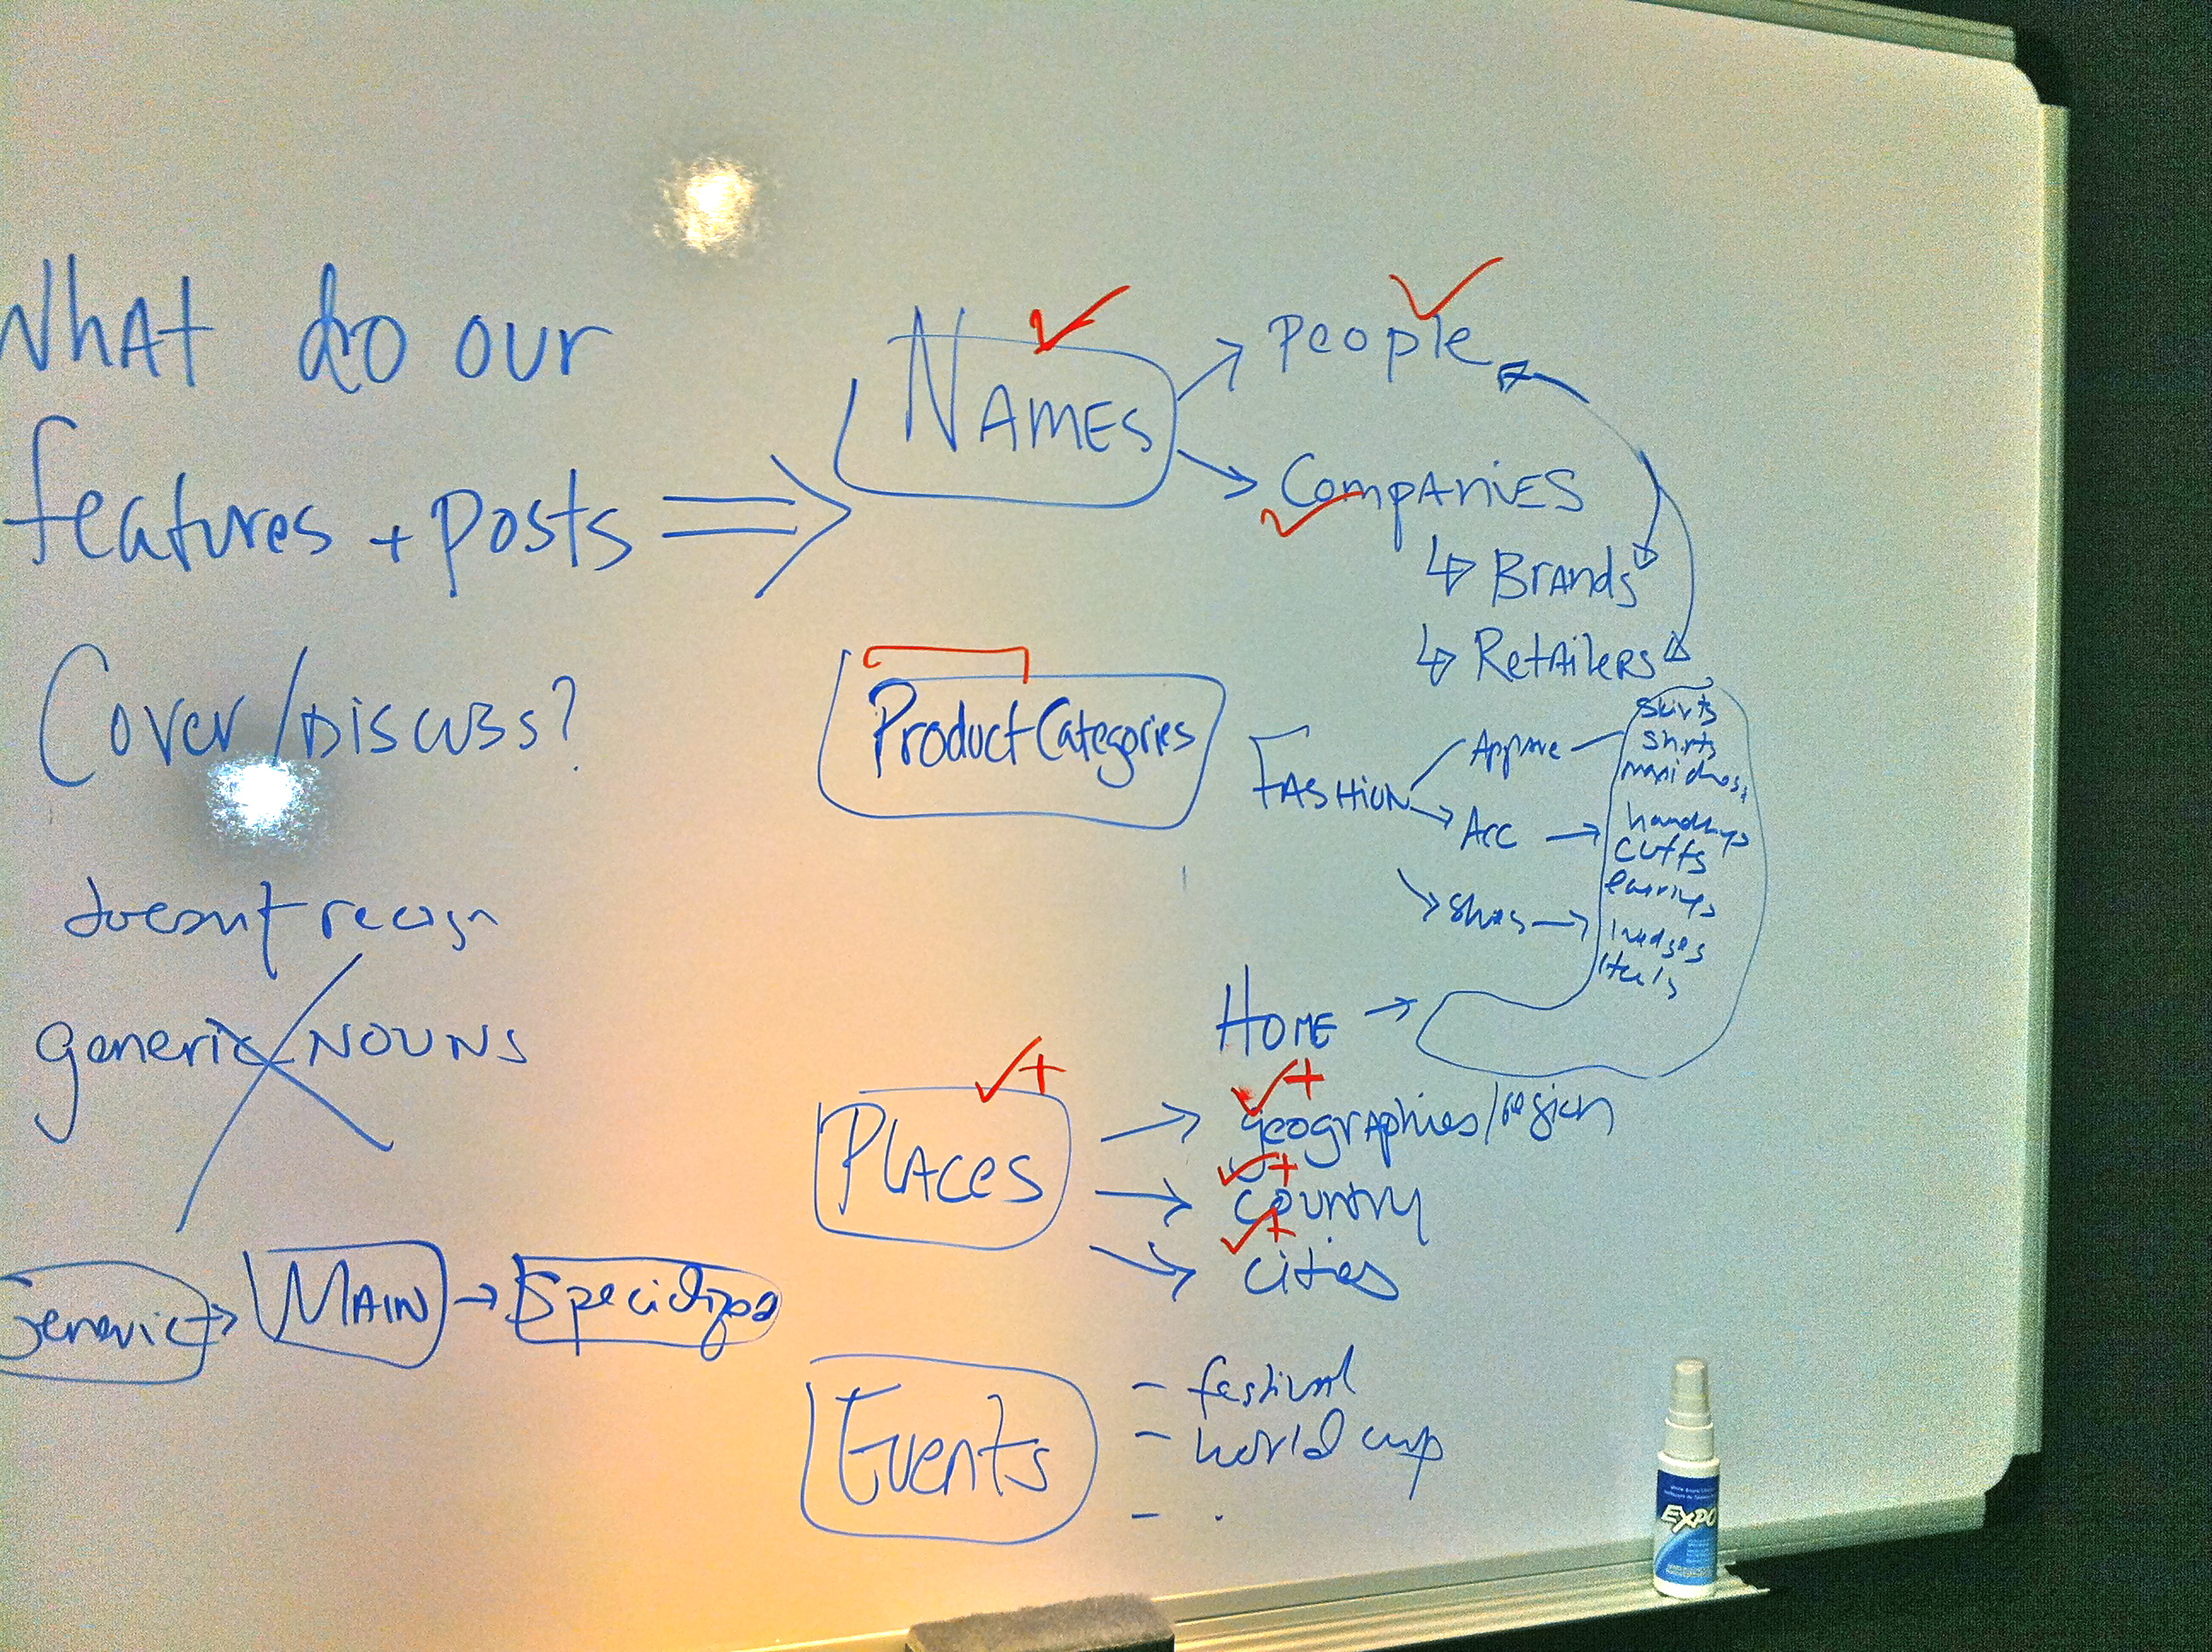 What do our
features + posts
Cover/Discuss?
doesnt recogn
generic NOUNS
Generic
MAIN
Specialized
NAMES
People
Companies
Brands
Retailers
Product Categories
FASHION
Acc
Shoes
skirts
shirts
maxi dress
handbags
cuffs
earrings
wedges
HOME
Places
geographies/region
country
cities
Events
- festival
- world cup
- .
EXPO